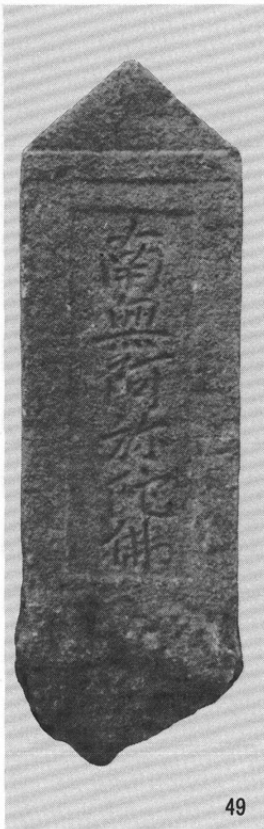 南無阿弥陀佛
49